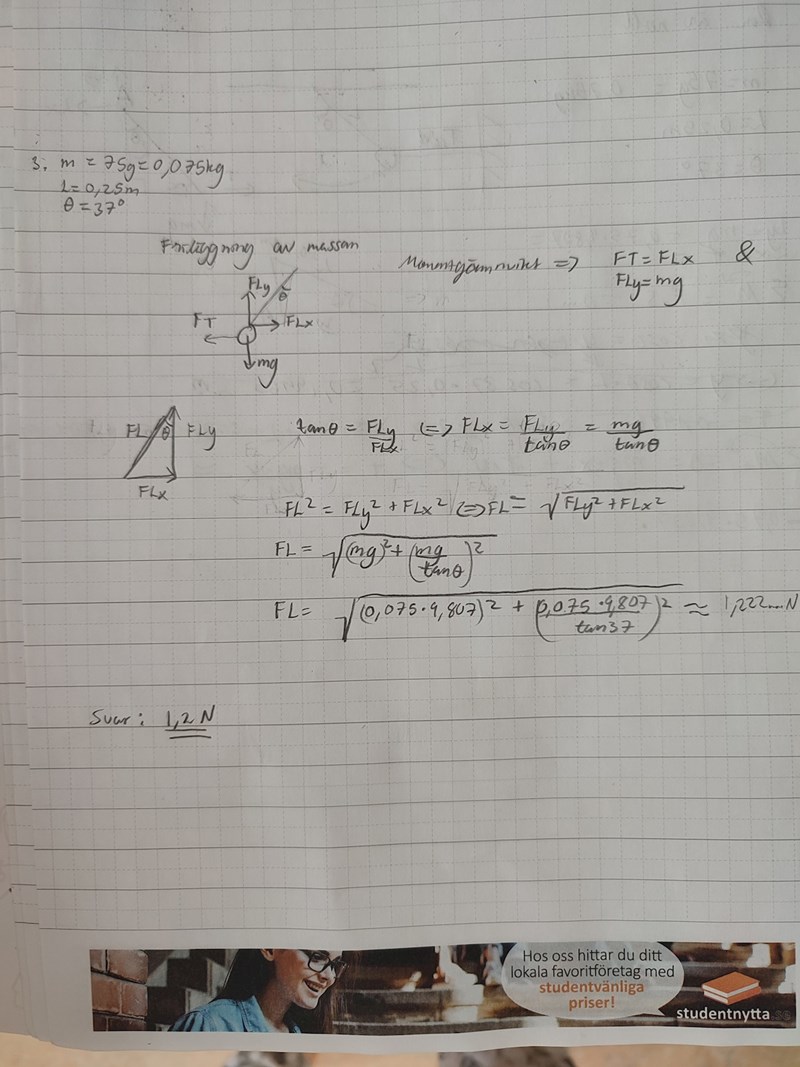 3. m = 75g = 0,075kg
L = 0,25m
θ = 37°
av massan
=> FT = FLx &
FLy = mg
FLy
θ
FT FLx
mg
FL θ FLy
FLx
tanθ = FLy/FLx <=> FLx = FLy/tanθ = mg/tanθ
FL² = FLy² + FLx² <=> FL = √(FLy² + FLx²)
FL = √((mg)² + (mg/tanθ)²)
FL = √((0,075·9,807)² + (0,075·9,807/tan37)²) ≈ 1,222... N
Svar: 1,2 N
Hos oss hittar du ditt
lokala favoritföretag med
studentvänliga
priser!
studentnytta